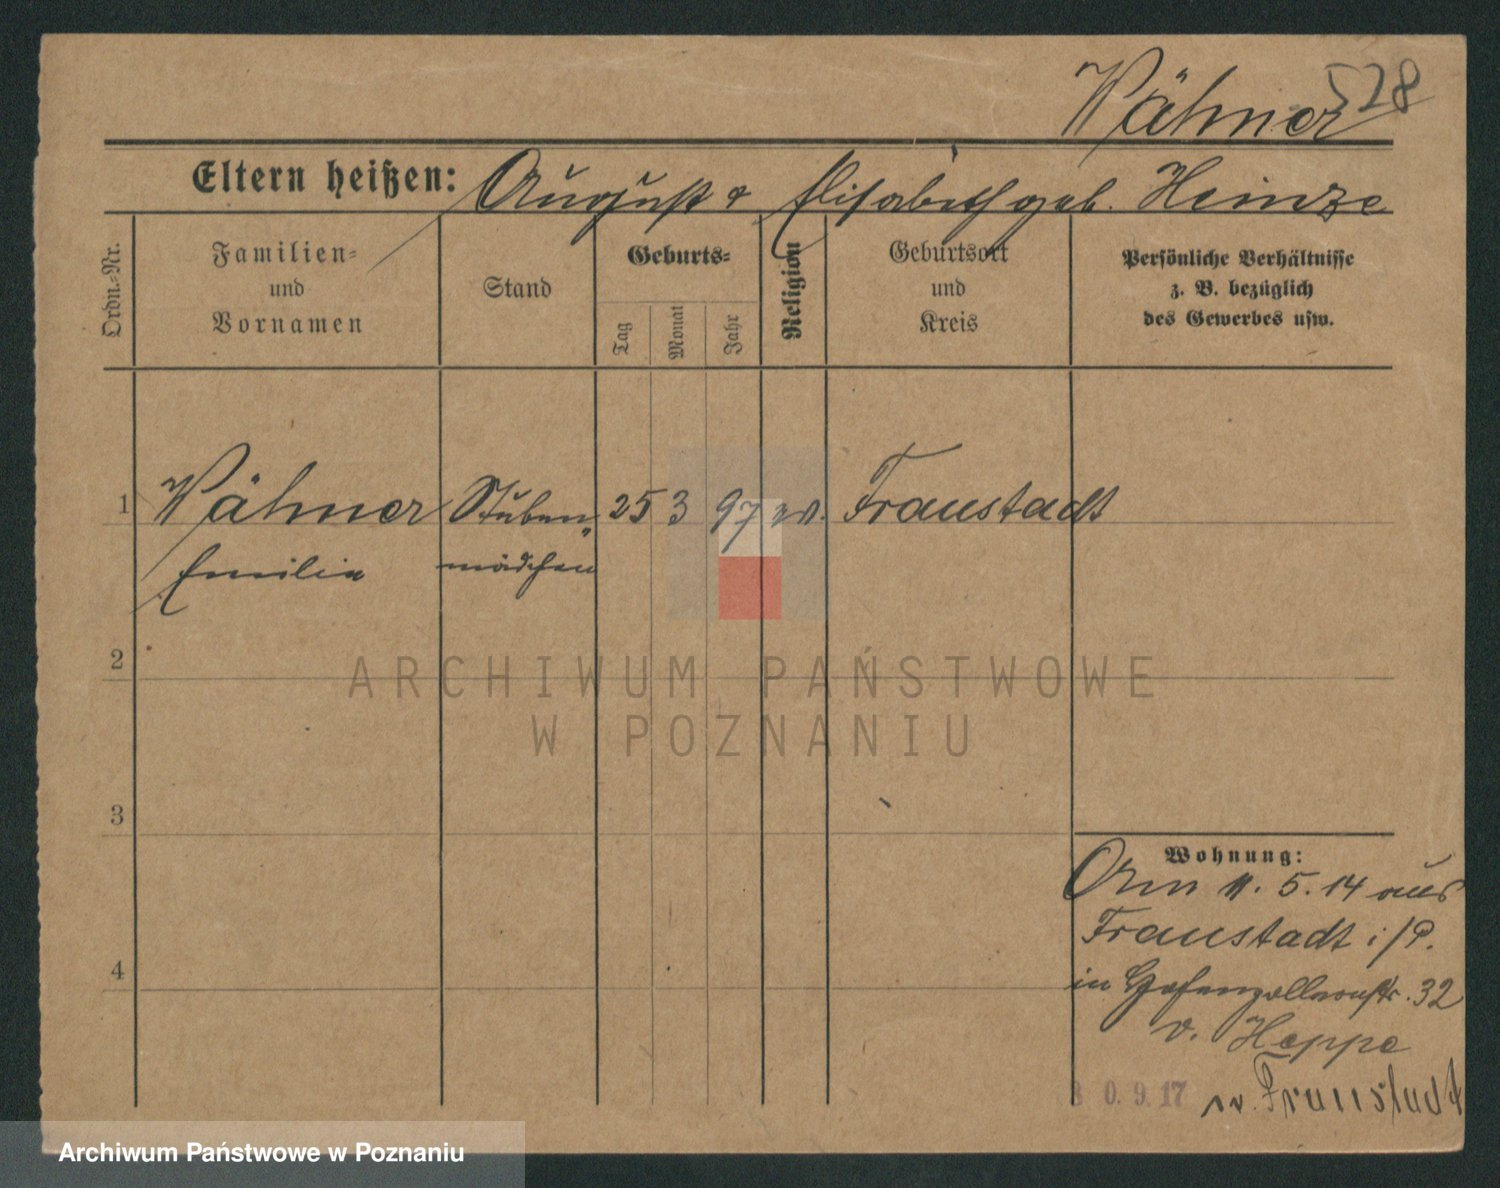 528
Wähner
Eltern heißen: August & Elisabeth geb. Heinze
Ordn.-Nr.
Familien-
und
Vornamen
Stand
Geburts-
Tag
Monat
Jahr
Religion
Geburtsort
und
Kreis
Persönliche Verhältnisse
z. B. bezüglich
des Gewerbes usw.
1 Wähner Stuben 25 3 97 ev. Fraustadt
Emilie mädchen
2
ARCHIWUM PAŃSTWOWE
W POZNANIU
3
Wohnung:
11. 5. 14 aus
Fraustadt i/P.
4
in Hohenzollernstr. 32
v. Heppe
0. 9. 17 Fraustadt
Archiwum Państwowe w Poznaniu